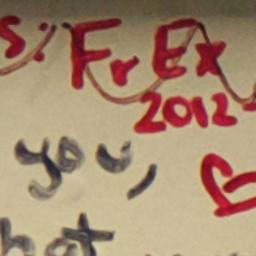 s: FrEx
2012
you,
hat